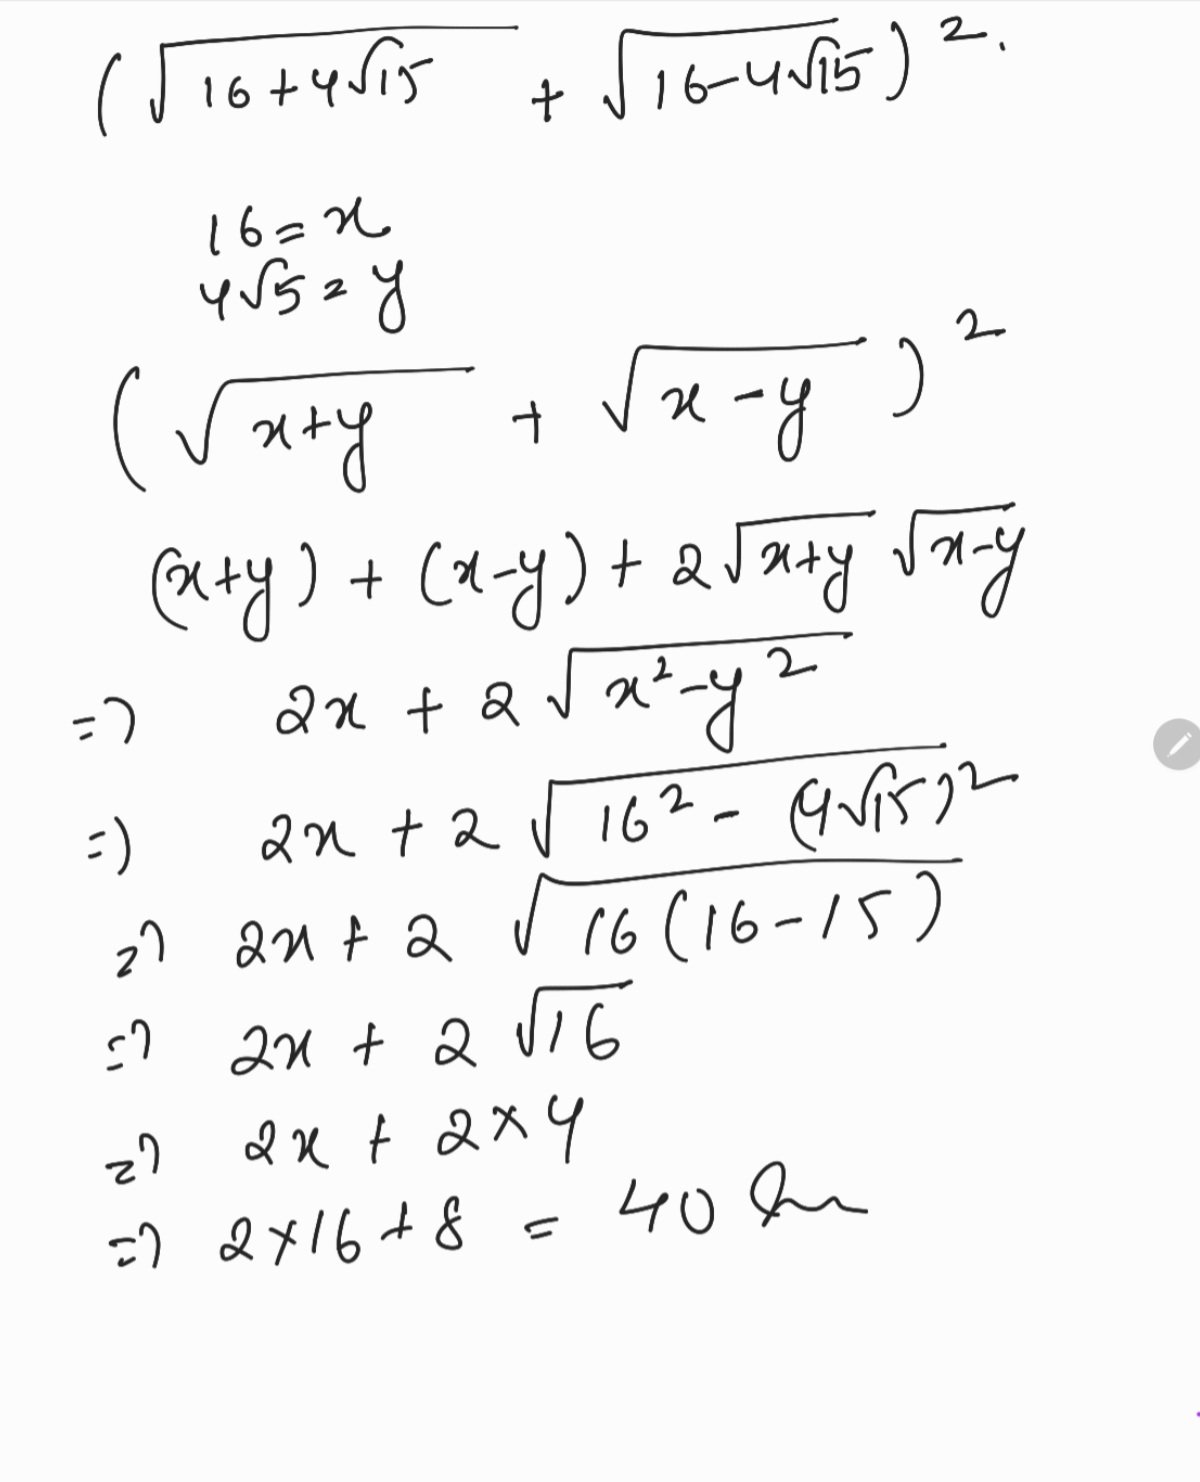 (√(16+4√15) + √(16-4√15))².
16 = x
4√5 = y
(√(x+y) + √(x-y))²
(x+y) + (x-y) + 2√(x+y) √(x-y)
=> 2x + 2√(x²-y²)
=> 2x + 2√(16² - (4√15)²)
=> 2x + 2√(16(16-15))
=> 2x + 2√16
=> 2x + 2×4
=> 2×16+8 = 40